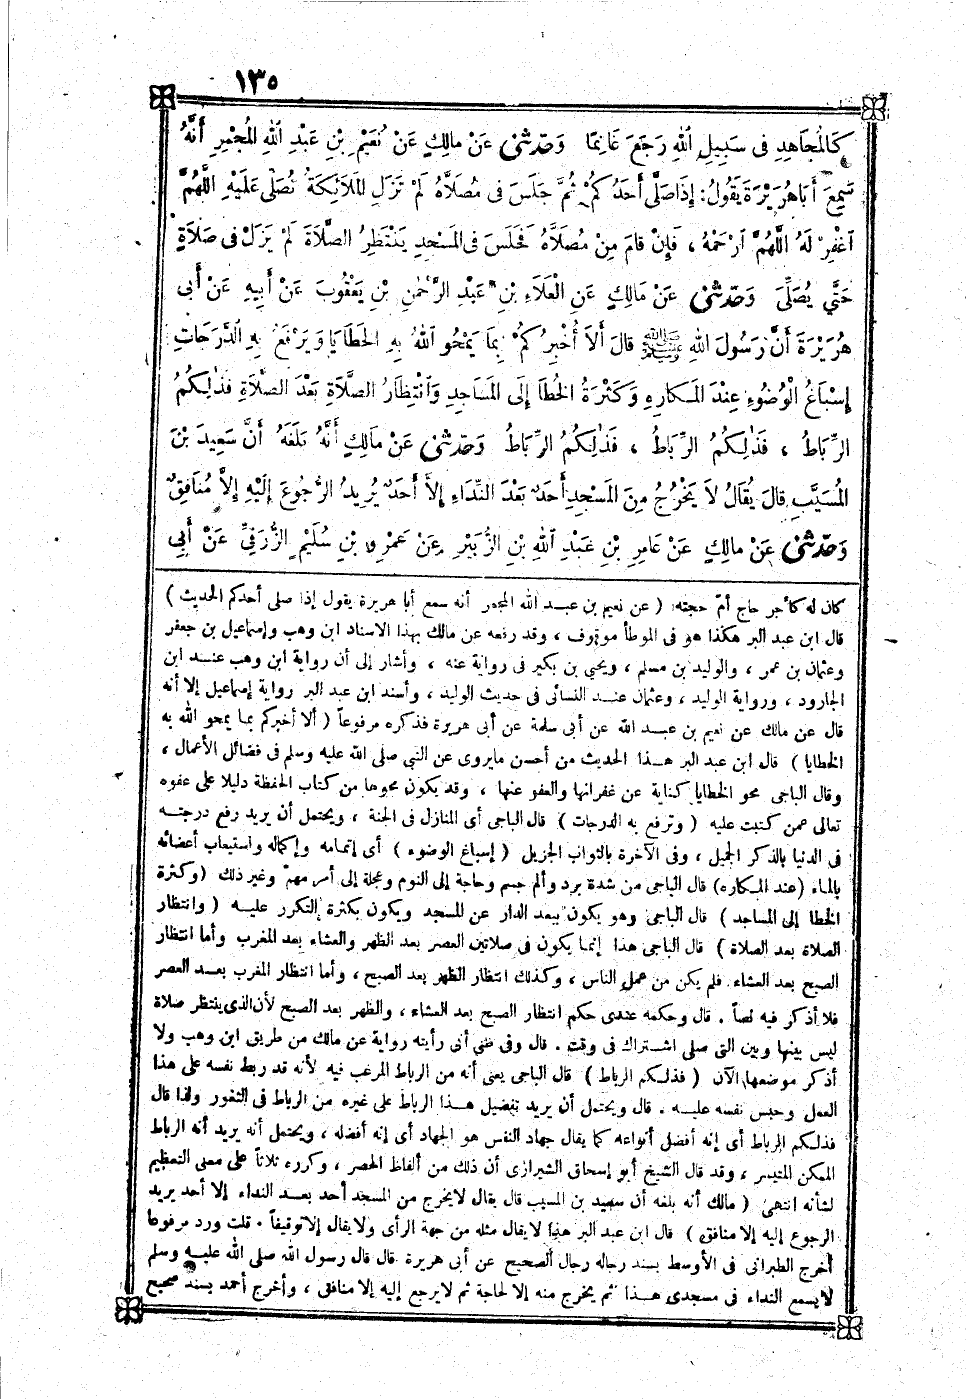 ١٣٥
كَالْمُجَاهِدِ فِى سَبِيلِ اللهِ رَجَعَ غَانِمًا وَحَدَّثَنِى عَنْ مَالِكٍ عَنْ نُعَيْمِ بْنِ عَبْدِ اللهِ الْمُجْمِرِ أَنَّهُ
سَمِعَ أَبَا هُرَيْرَةَ يَقُولُ: إِذَا صَلَّى أَحَدُكُمْ ثُمَّ جَلَسَ فِى مُصَلَّاهُ لَمْ تَزَلِ الْمَلَائِكَةُ تُصَلِّى عَلَيْهِ اللَّهُمَّ
اغْفِرْ لَهُ اللَّهُمَّ ارْحَمْهُ ، فَإِنْ قَامَ مِنْ مُصَلَّاهُ فَجَلَسَ فِى الْمَسْجِدِ يَنْتَظِرُ الصَّلَاةَ لَمْ يَزَلْ فِى صَلَاةٍ
حَتَّى يُصَلِّىَ وَحَدَّثَنِى عَنْ مَالِكٍ عَنِ الْعَلَاءِ بْنِ عَبْدِ الرَّحْمٰنِ بْنِ يَعْقُوبَ عَنْ أَبِيهِ عَنْ أَبِى
هُرَيْرَةَ أَنَّ رَسُولَ اللهِ ﷺ قَالَ أَلَا أُخْبِرُكُمْ بِمَا يَمْحُو اللهُ بِهِ الْخَطَايَا وَيَرْفَعُ بِهِ الدَّرَجَاتِ
إِسْبَاغُ الْوُضُوءِ عِنْدَ الْمَكَارِهِ وَكَثْرَةُ الْخُطَا إِلَى الْمَسَاجِدِ وَانْتِظَارُ الصَّلَاةِ بَعْدَ الصَّلَاةِ فَذٰلِكُمُ
الرِّبَاطُ ، فَذٰلِكُمُ الرِّبَاطُ ، فَذٰلِكُمُ الرِّبَاطُ وَحَدَّثَنِى عَنْ مَالِكٍ أَنَّهُ بَلَغَهُ أَنَّ سَعِيدَ بْنَ
الْمُسَيَّبِ قَالَ يُقَالُ لَا يَخْرُجُ مِنَ الْمَسْجِدِ أَحَدٌ بَعْدَ النِّدَاءِ إِلَّا أَحَدٌ يُرِيدُ الرُّجُوعَ إِلَيْهِ إِلَّا مُنَافِقٌ
وَحَدَّثَنِى عَنْ مَالِكٍ عَنْ عَامِرِ بْنِ عَبْدِ اللهِ بْنِ الزُّبَيْرِ عَنْ عَمْرِو بْنِ سُلَيْمٍ الزُّرَقِىِّ عَنْ أَبِى
كان له كأجر حاج تام حجته. ( عن نعيم بن عبد الله المجمر أنه سمع أبا هريرة يقول إذا صلى أحدكم الحديث )
قال ابن عبد البر هكذا هو فى الموطأ موقوف ، وقد رفعه عن مالك بهذا الاسناد ابن وهب وإسماعيل بن جعفر
وعثمان بن عمر ، والوليد بن مسلم ، ويحيى بن بكير فى رواية عنه ، وأشار إلى أن رواية ابن وهب عند ابن
الجارود ، ورواية الوليد ، وعثمان عند النسائى فى حديث الوليد ، وأسند ابن عبد البر رواية إسماعيل إلا أنه
قال عن مالك عن نعيم بن عبد الله عن أبى سلمة عن أبى هريرة فذكره مرفوعاً ( ألا أخبركم بما يمحو الله به
الخطايا ) قال ابن عبد البر هذا الحديث من أحسن مايروى عن النبى صلى الله عليه وسلم فى فضائل الأعمال ،
وقال الباجى محو الخطايا كناية عن غفرانها والعفو عنها ، وقد يكون محوها من كتاب الحفظة دليلا على عفوه
تعالى عمن كتبت عليه ( وترفع به الدرجات ) قال الباجى أى المنازل فى الجنة ، ويحتمل أن يريد رفع درجته
فى الدنيا بالذكر الجميل ، وفى الآخرة بالثواب الجزيل ( إسباغ الوضوء ) أى إتمامه وإكماله واستيعاب أعضائه
بالماء (عند المكاره) قال الباجى من شدة برد وألم جسم وحاجة إلى النوم وعجلة إلى أمر مهم وغير ذلك (وكثرة
الخطا إلى المساجد ) قال الباجى وهو يكون ببعد الدار عن المسجد ويكون بكثرة التكرر عليه ( وانتظار
الصلاة بعد الصلاة ) قال الباجى هذا إنما يكون فى صلاتين العصر بعد الظهر والعشاء بعد المغرب وأما انتظار
الصبح بعد العشاء. فلم يكن من عمل الناس ، وكذلك انتظار الظهر بعد الصبح ، وأما انتظار المغرب بعد العصر
فلا أذكر فيه نصاً . قال وحكمه عندى حكم انتظار الصبح بعد العشاء ، والظهر بعد الصبح لأن الذى ينتظر صلاة
ليس بينها وبين التى صلى اشتراك فى وقت . قال وفى ظنى أنى رأيته رواية عن مالك من طريق ابن وهب ولا
أذكر موضعها الآن ( فذلكم الرباط ) قال الباجى يعنى أنه من الرباط المرغب فيه لأنه قد ربط نفسه على هذا
العمل وحبس نفسه عليه . قال ويحتمل أن يريد تفضيل هذا الرباط على غيره من الرباط فى الثغور ولذا قال
فذلكم الرباط أى إنه أفضل أنواعه كما يقال جهاد النفس هو الجهاد أى إنه أفضله ، ويحتمل أنه يريد أنه الرباط
الممكن المتيسر ، وقد قال الشيخ أبو إسحاق الشيرازى أن ذلك من ألفاظ الحصر ، وكرره ثلاثاً على معنى التعظيم
لشأنه انتهى ( مالك أنه بلغه أن سعيد بن المسيب قال يقال لايخرج من المسجد أحد بعد النداء إلا أحد يريد
الرجوع إليه إلا منافق ) قال ابن عبد البر هذا لا يقال مثله من جهة الرأى ولا يقال إلا توقيفاً . قلت ورد مرفوعا
أخرج الطبرانى فى الأوسط بسند رجاله رجال الصحيح عن أبى هريرة قال قال رسول الله صلى الله عليه وسلم
لايسمع النداء فى مسجدى هذا ثم يخرج منه إلا لحاجة ثم لايرجع إليه إلا منافق ، وأخرج أحمد بسند صحيح